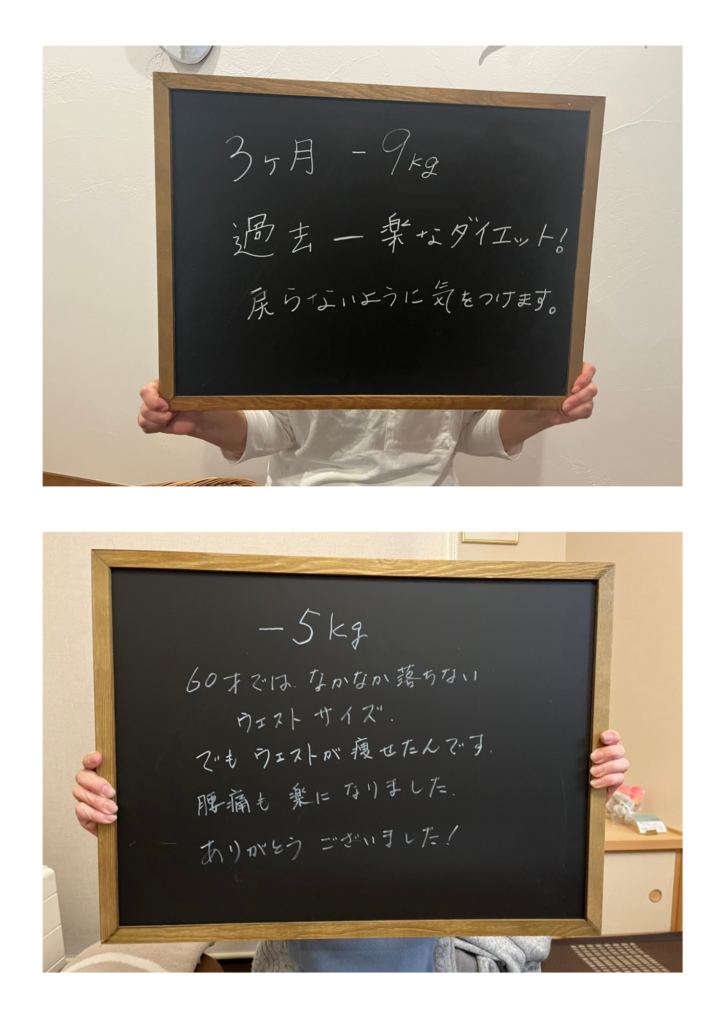 3ヶ月 -9kg
過去一楽なダイエット!
戻らないように気をつけます。
-5kg
60才では、なかなか落ちない
ウェストサイズ.
でもウェストが痩せたんです.
腰痛も楽になりました.
ありがとうございました!